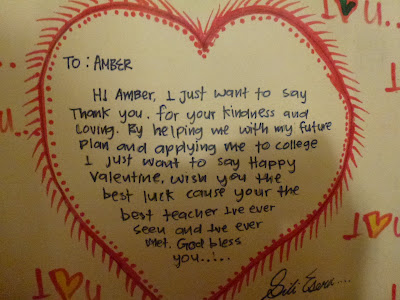 I U...
TO: AMBER
Hi Amber, I just want to say
Thank you. for your kindness and
Loving. By helping me with my future
Plan and applying me to college
I just want to say Happy
Valentine, wish you the
best luck cause your the
best teacher Ive ever
seen and Ive ever
met. God bless
you..!..
I U
I U
I U